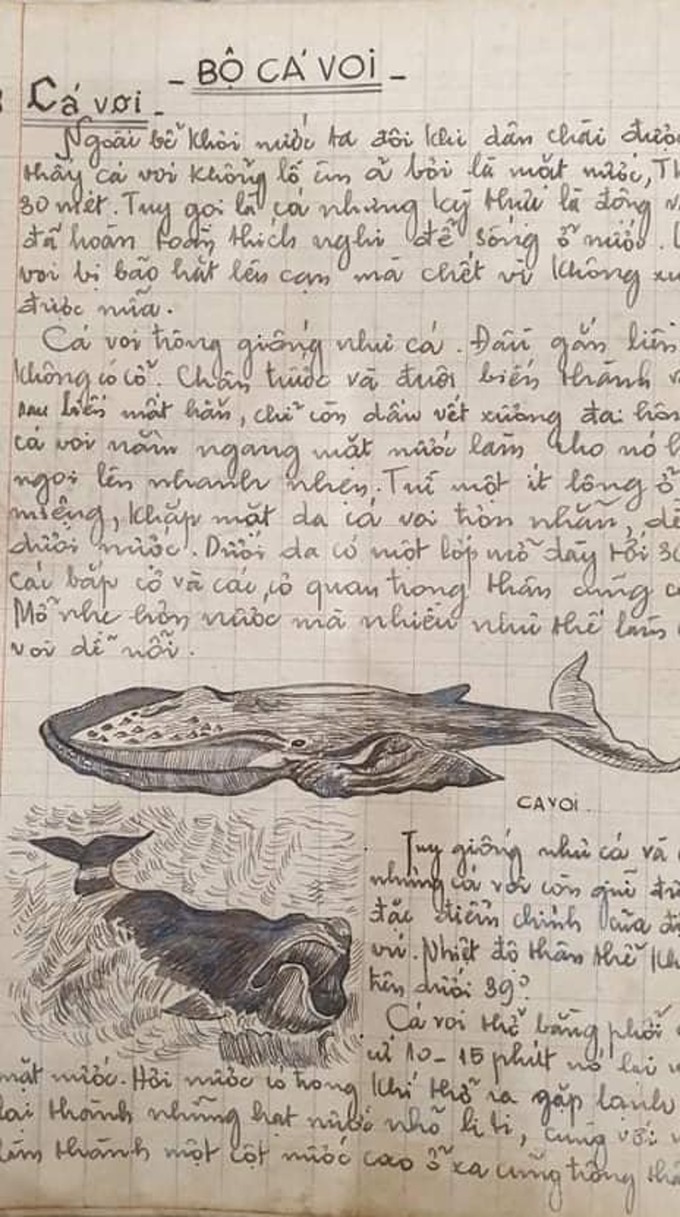 - BỘ CÁ VOI -
Cá voi -
Ngoài bể khơi nước ta đôi khi dân chài được
thấy cá voi khổng lồ bơi là mặt nước, Th
30 mét. Tuy gọi là cá nhưng kỳ thực là động v
đã hoàn toàn thích nghi để sống ở nước.
voi bị bão hắt lên cạn mà chết vì không xu
được nữa.
Cá voi trông giống như cá. Đầu gắn liền
không có cổ. Chân trước và đuôi biến thành v
sau biến mất hẳn, chỉ còn dấu vết xương đai hôn
cá voi nằm ngang mặt nước làm cho nó l
ngoi lên nhanh nhẹn. Trừ một ít lông ở
miệng, khắp mặt da cá voi trơn nhẵn, dễ
dưới nước. Dưới da có một lớp mỡ dày tới 30
các bắp cơ và các cơ quan trong thân cũng c
Mỡ nhẹ hơn nước mà nhiều như thế làm c
voi dễ nổi.
CAVOI.
Tuy giống như cá và
nhưng cá voi còn giữ đư
đặc điểm chính của độ
vú. Nhiệt độ thân thể kh
trên dưới 39°
Cá voi thở bằng phổi
cứ 10-15 phút nó lại
mặt nước. Hơi nước có trong khí thở ra gặp lạnh
lại thành những hạt nước nhỏ li ti, cùng với
làm thành một cột nước cao ở xa cũng trông thấ